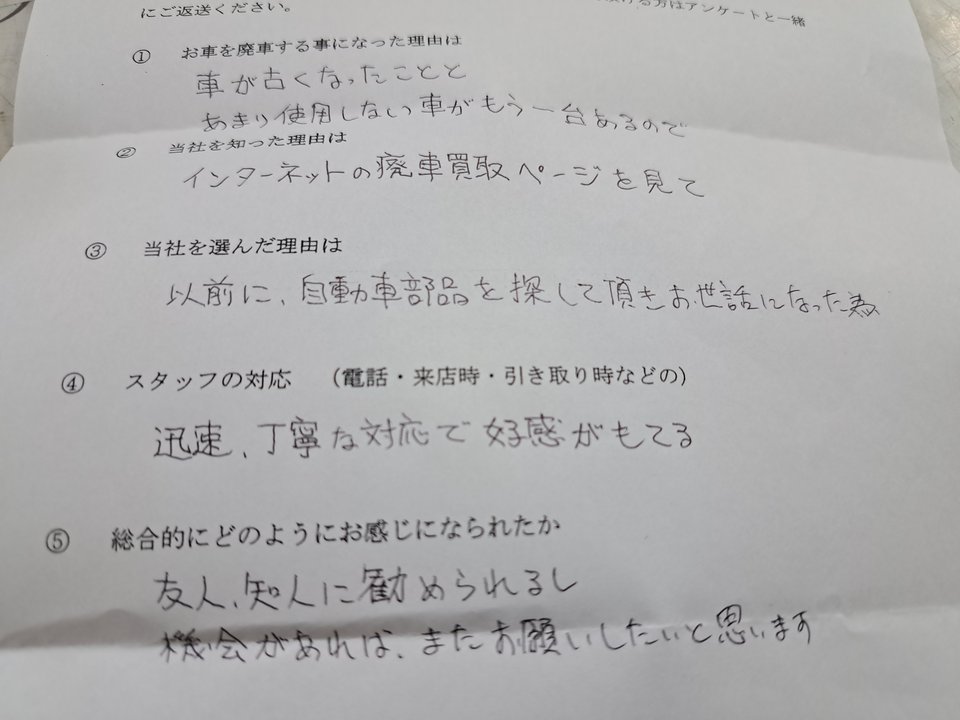 はアンケートと一緒
にご返送ください。
① お車を廃車する事になった理由は
車が古くなったことと
あまり使用しない車がもう一台あるので
② 当社を知った理由は
インターネットの廃車買取ページを見て
③ 当社を選んだ理由は
以前に、自動車部品を探して頂きお世話になった為
④ スタッフの対応 （電話・来店時・引き取り時などの)
迅速、丁寧な対応で好感がもてる
⑤ 総合的にどのようにお感じになられたか
友人、知人に勧められるし
機会があれば、またお願いしたいと思います